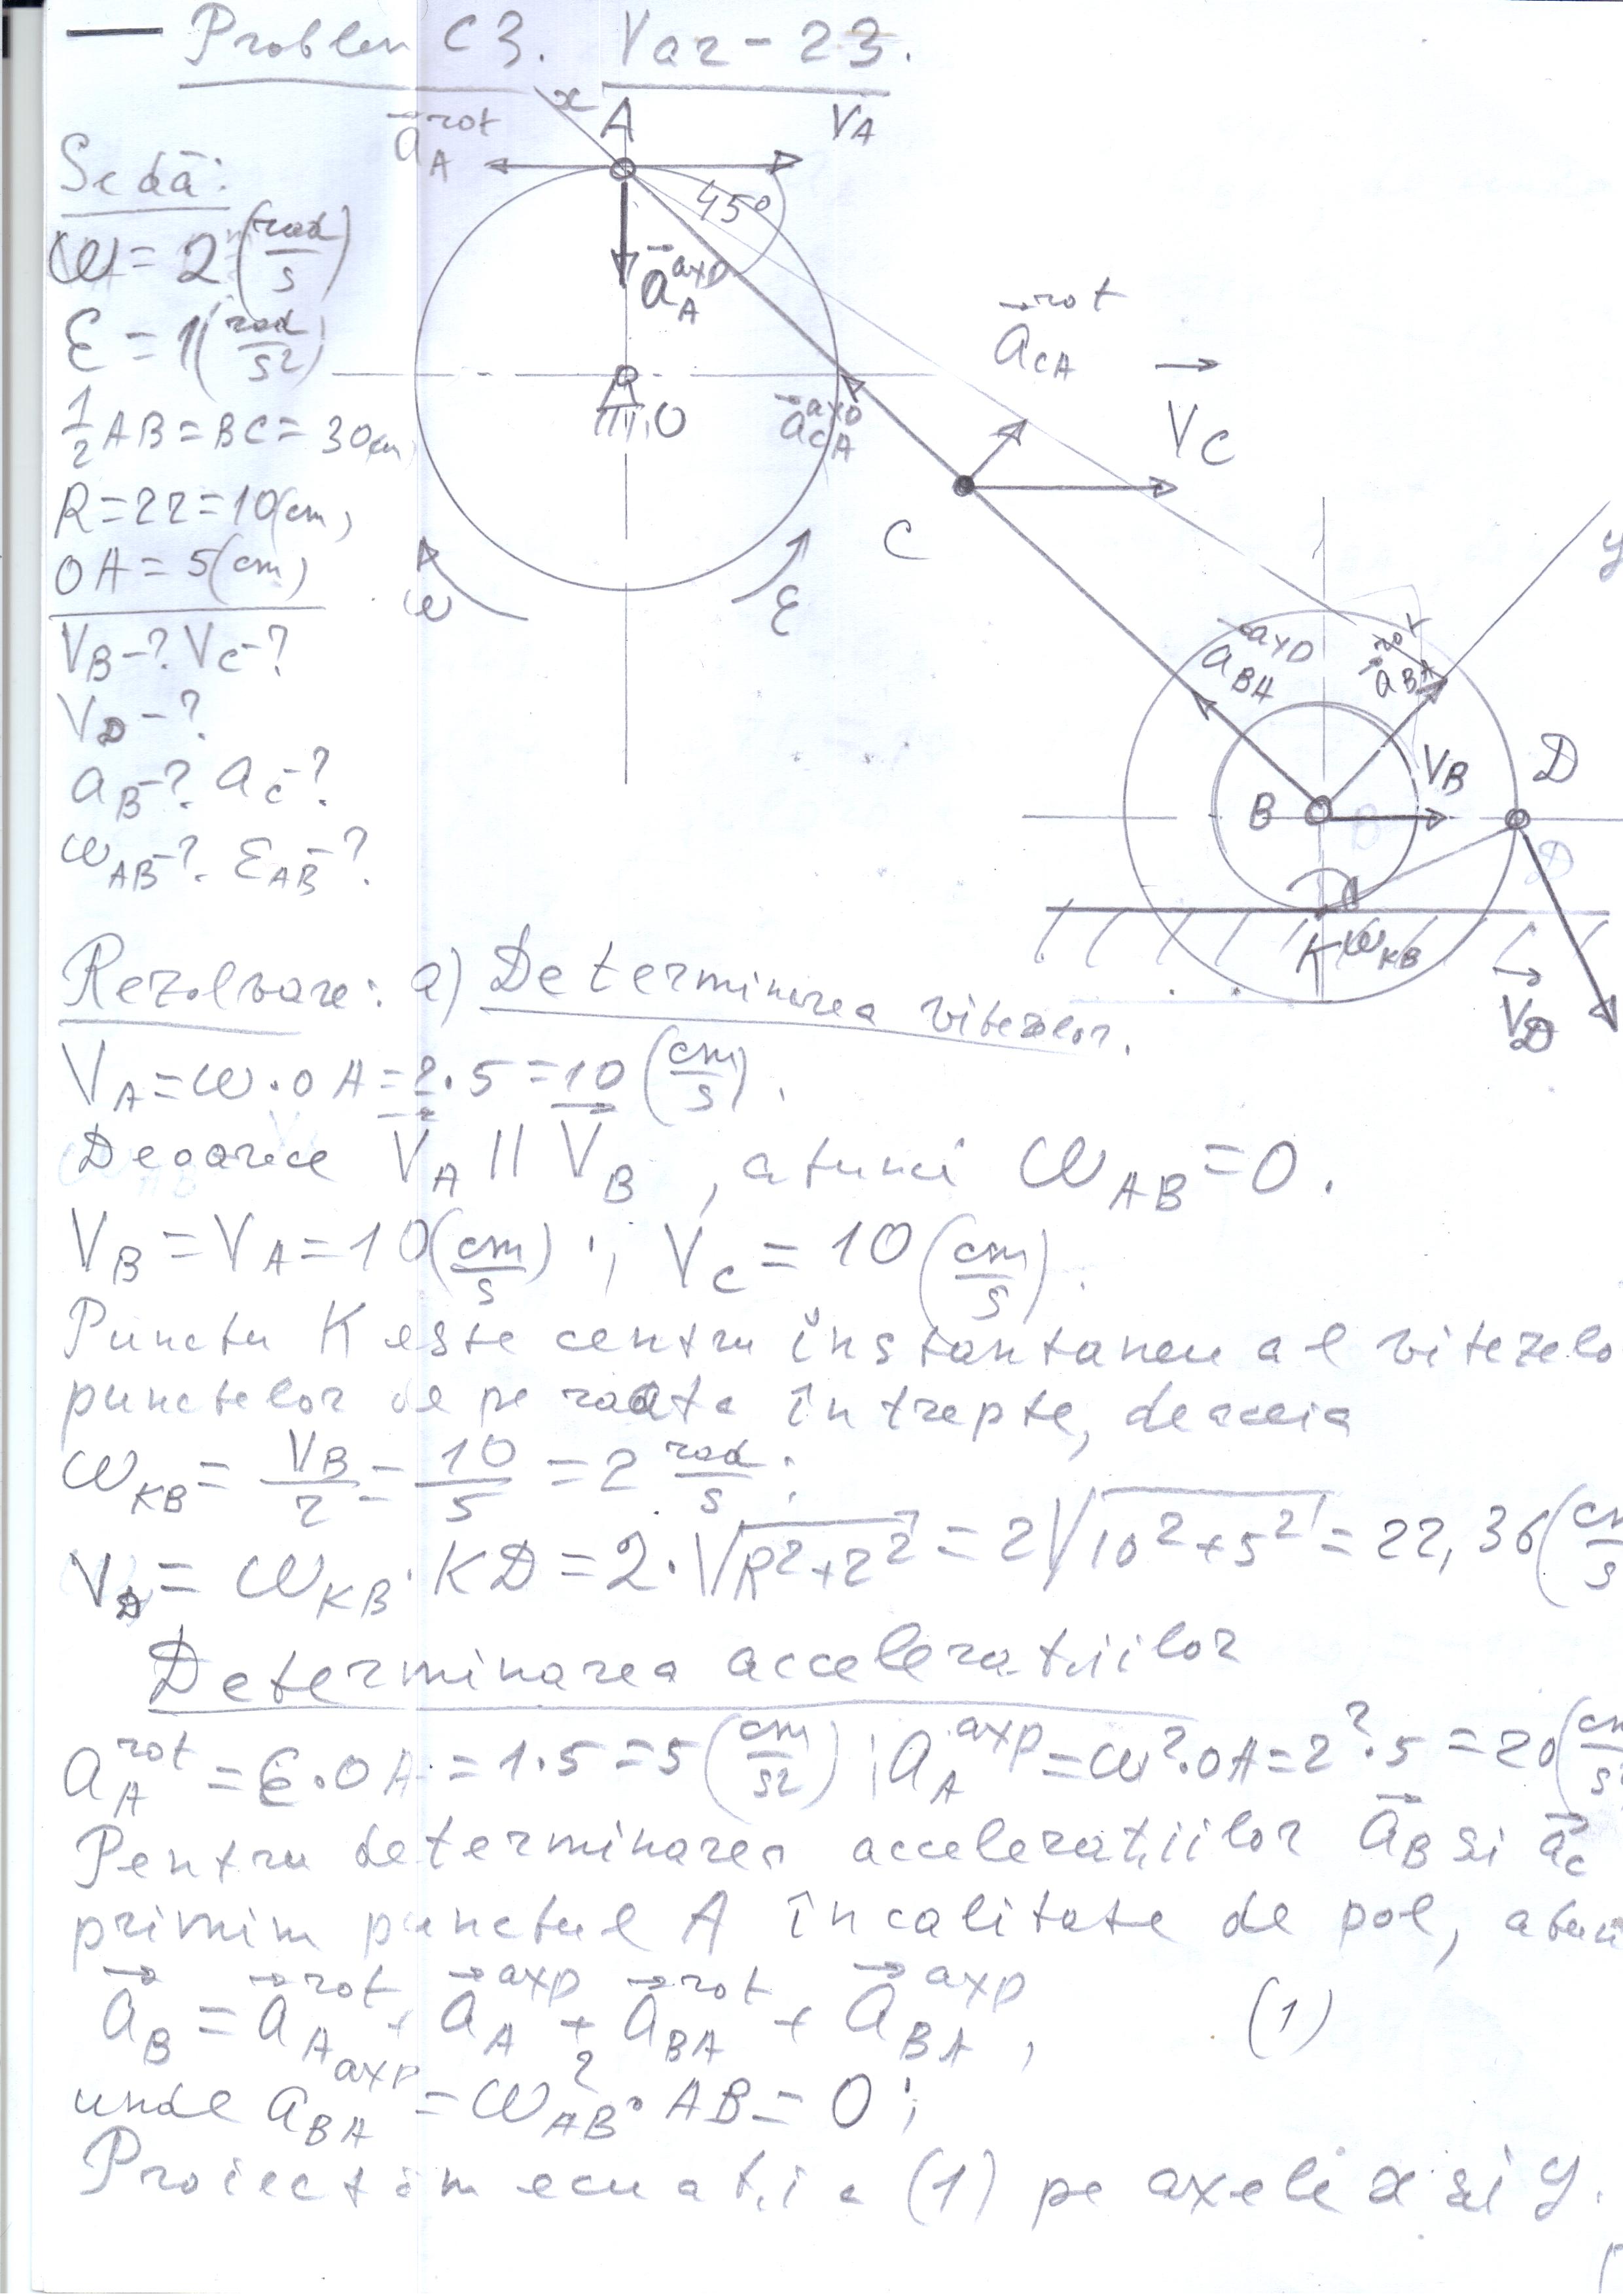 Problem C3. Var-23.
Se dă:
ω = 2 (rad/s)
ε = 1 (rad/s²)
½ AB = BC = 30 cm,
R = 2r = 10 (cm)
OA = 5 (cm)
V_B -? V_C -?
V_D -?
a_B -? a_C -?
ω_AB -? ε_AB -?
x
A
a_A^rot
V_A
45°
a_A^axp
O
a_CA^rot
V_C
a_CA^axp
C
ω
ε
y
a_BA^axp
a_BA^rot
V_B
B
D
K
ω_KB
V_D
Rezolvare: a) Determinarea vitezelor.
V_A = ω·OA = 2·5 = 10 (cm/s).
Deoarece V_A || V_B, atunci ω_AB = 0.
V_B = V_A = 10 (cm/s); V_C = 10 (cm/s).
Punctu K este centru instantaneu al vitezelo
punctelor de pe roata în trepte, deaceia
ω_KB = V_B/r = 10/5 = 2 rad/s;
V_D = ω_KB·KD = 2·√(R²+r²) = 2√(10²+5²) = 22,36 (cm/s
Determinarea accelerațiilor
a_A^rot = ε·OA = 1·5 = 5 (cm/s²); a_A^axp = ω²·OA = 2²·5 = 20 (cm/s²
Pentru determinarea accelerațiilor a_B și a_C
primim punctul A în calitate de pol, atunci
a_B = a_A^rot + a_A^axp + a_BA^rot + a_BA^axp, (1)
unde a_BA^axp = ω_AB²·AB = 0;
Proiectăm ecuația (1) pe axele x și y.